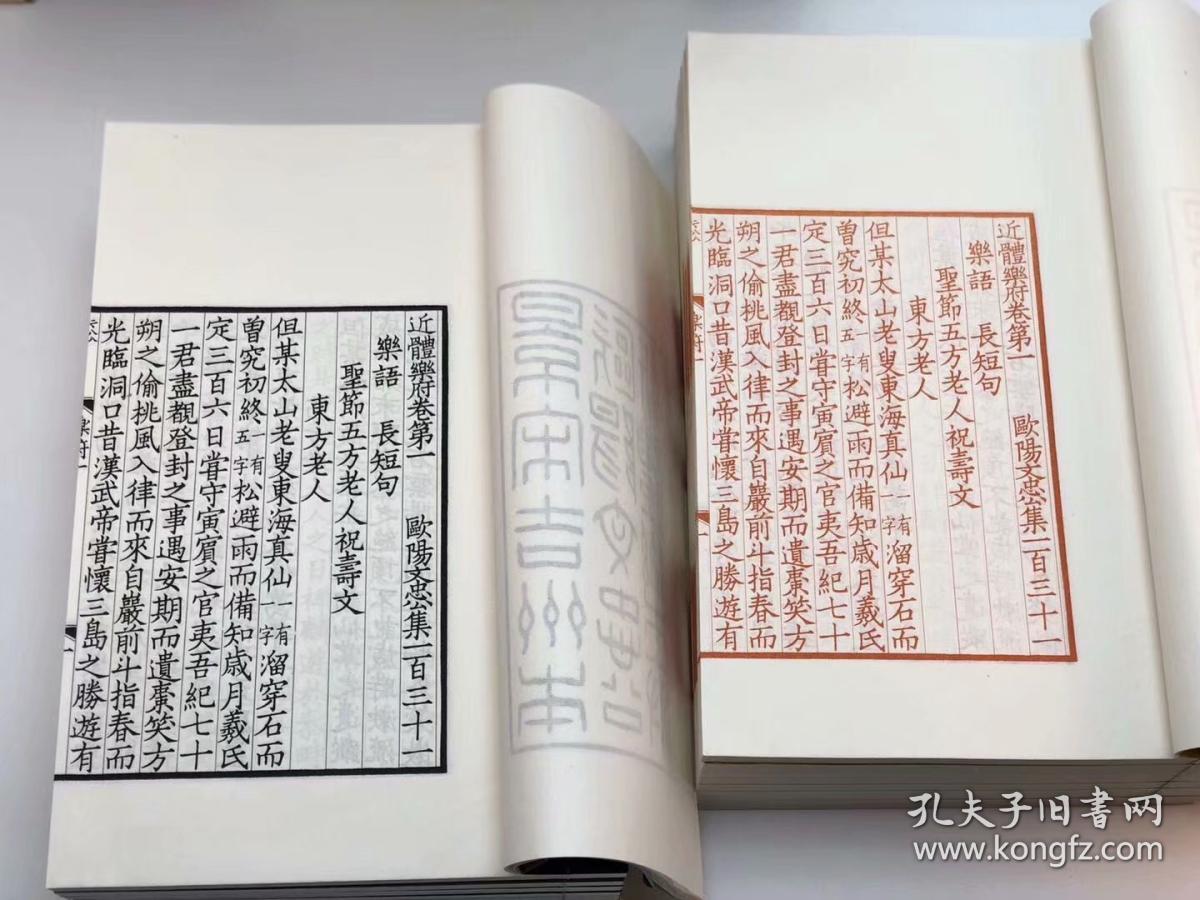 近體樂府卷第一 歐陽文忠公集一百三十一
樂語 長短句
聖節五方老人祝壽文
東方老人
但某太山老叟東海真仙一有一字溜穿石而
曽究初終一有五字松避雨而備知歳月羲氏
定三百六日甞守寅賔之官夷吾紀七十
一君盡觀登封之事遇安期而遺棗笑方
朔之偷桃風入律而來自巖前斗指春而
光臨洞口昔漢武帝甞懷三島之勝遊有
近體樂府卷第一 歐陽文忠公集一百三十一
樂語 長短句
聖節五方老人祝壽文
東方老人
但某太山老叟東海真仙一有一字溜穿石而
曽究初終一有五字松避雨而備知歳月羲氏
定三百六日甞守寅賔之官夷吾紀七十
一君盡觀登封之事遇安期而遺棗笑方
朔之偷桃風入律而來自巖前斗指春而
光臨洞口昔漢武帝甞懷三島之勝遊有
孔夫子旧书网
www.kongfz.com